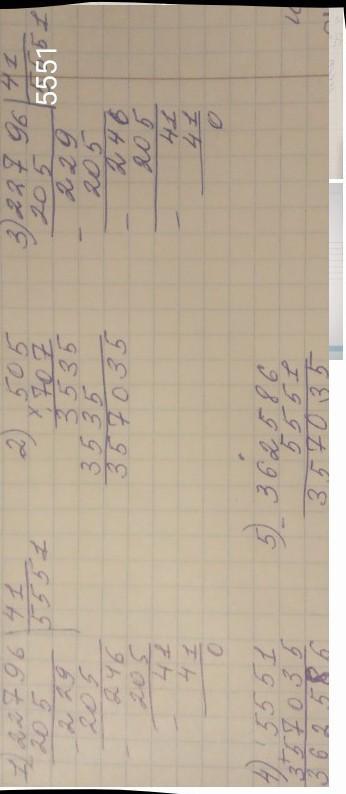 1) 22796 | 41
205 5551
- 229
205
- 246
205
- 41
41
0
2) × 505
707
3535
3535
357035
3) 22796 | 41
205 5551
- 229
205
- 246
205
- 41
41
0
4) 5551
+ 357035
362586
5) - 362586
5551
357035